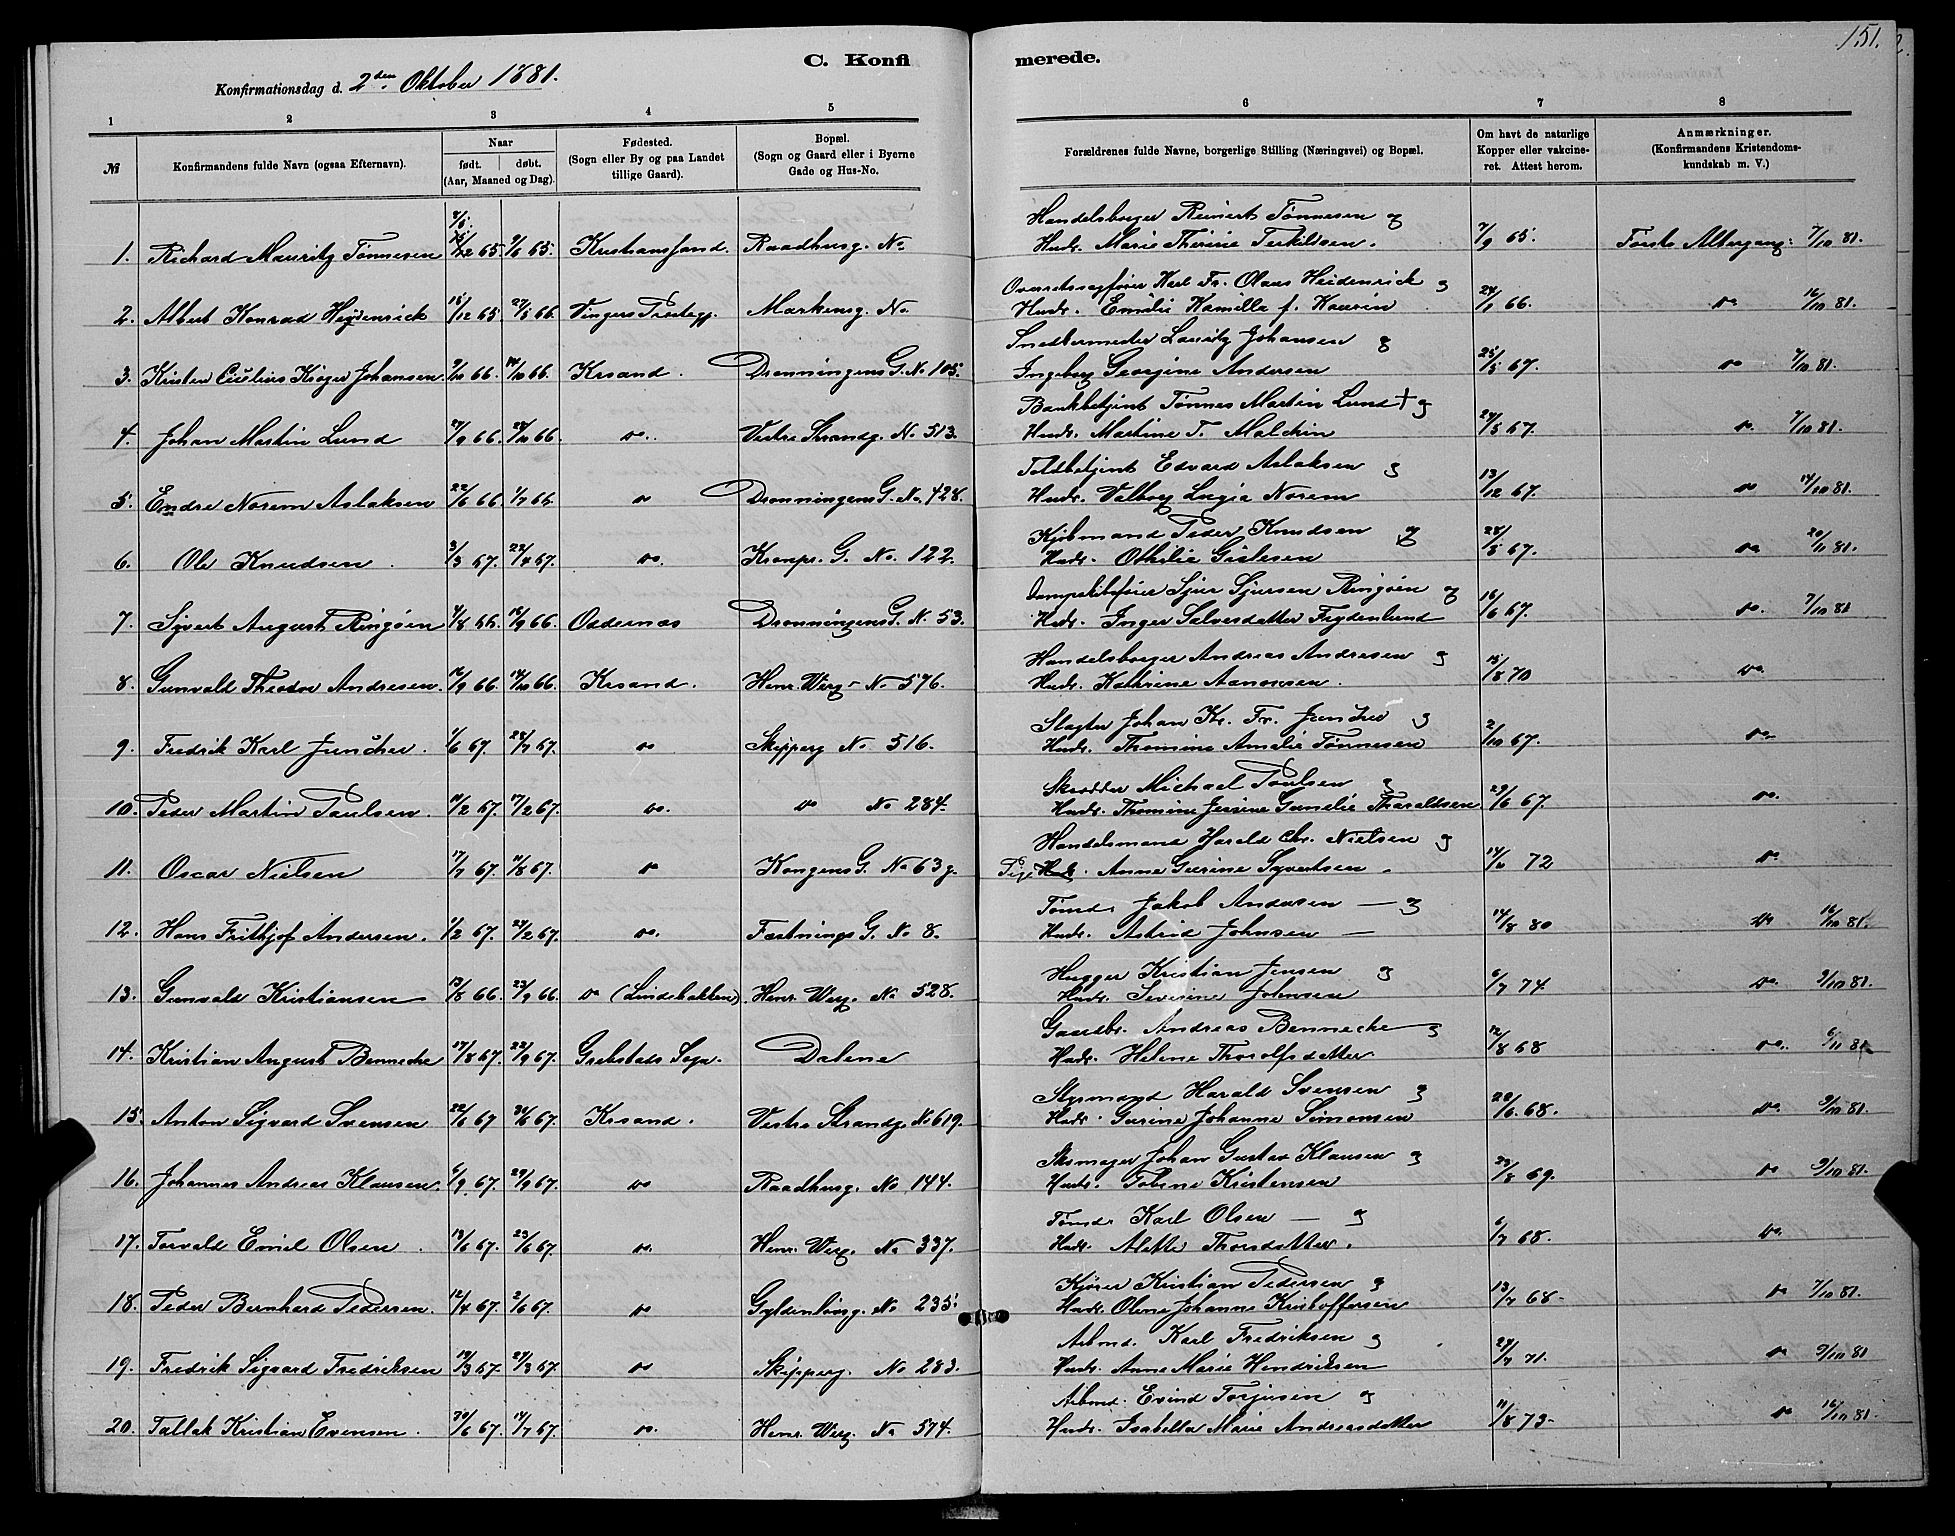 151.
C. Konfi
merede.
Konfirmationsdag d. 2den Oktober 1881.
1 2 3 4 5 6 7 8
№ Konfirmandens fulde Navn (ogsaa Efternavn).
Naar
født. døbt.
(Aar, Maaned og Dag).
Fødested.
(Sogn eller By og paa Landet
tillige Gaard).
Bopæl.
(Sogn og Gaard eller i Byerne
Gade og Hus-No.
Forældrenes fulde Navne, borgerlige Stilling (Næringsvei) og Bopæl.
Om havt de naturlige
Kopper eller vakcine-
ret. Attest herom.
Anmærkninger.
(Konfirmandens Kristendoms-
kundskab m. V.)
Handelsborger Reinert Tønnesen og
1. Richard Mauritz Tønnesen Kristianssand. Raadhusg. No Hustr. Marie Thérine Terkildsen. 7/9 65. Første Altergang: 7/10 81.
Overretssagfører Karl Fr. Olaus Heidenrick og
2. Albert Konrad Heydenrick 15/12 65 27/5 66. Vingers Prestegj. Markensg. No. Hustr. Emilie Kamilla f. Kaurin 24/7 66. do 16/10 81.
Snedkermester Lauritz Johansen og
3. Kristen Julius Krøger Johansen. 14/10 66. Krsand. Dronningens G. No 105. Ingeborg Georgine Andersen 25/5 67. do 7/10 81.
Bankbetjent Tønnes Martin Lund † og
4. Johan Martin Lund 27/9 66. 28/10 66. do. Vestre Strandg. No 513. Hustr. Martine T. Malchin 24/5 67. do. 7/10 81.
Toldbetjent Edvard Aslaksen og
5. Endre Norem Aslaksen 22/6 66. 1/7 66. do Dronningens G. No. 428. Hustr. Valborg Lugia Norem 13/12 67. do 14/10 81.
Kjøbmand Peder Knudsen og
6. Ole Knudsen. 3/3 67. 22/4 67. do. Kronpr. G. No. 122. Hustr. Othilie Gislesen 28/5 67. do. 20/11 81.
Dampskibsfører Sjur Sjursen Ringøen og
7. Syvert August Ringøen 4/8 66. 16/9 66. Oddernæs Dronningens G. No. 53. Hustr. Inger Salvesdatter Frydenlund 16/6 67. do. 7/10 81
Handelsborger Andreas Andresen og
8. Gunvald Theodor Andresen. 14/10 66. Krsand. Henr. Werg. No 576. Hustr. Kathrine Aanonsen. 15/8 70 do.
Slagter Johan Kr. Fr. Juncher og
9. Fredrik Karl Juncher. 1/6 67. 28/7 67. do Skipperg No 516. Hustr. Thomine Amalie Tønnesen 2/10 67. do.
Skrædder Michael Paulsen og
10. Peder Martin Paulsen. 17/2 67. do. do No 284. Hustr. Thomine Jensine Gunelie Tharaldsen 29/6 67. do.
Handelsmand Harald Chr. Nielsen og
11. Oscar Nielsen 17/7 67. 11/8 67. do Kongens G. No 63 g. Pige Anne Gurine Syvertsen. 72 do
Tømd. Jakob Andersen — og
12. Hans Frithjof Andersen. 1/2 67. 24/2 67. do. Festnings G. No 8. Hustr. Astrid Johnsen — 14/8 80 do 16/10 81.
Hugger Kristian Jensen og
13. Gunvald Kristiansen 13/8 66. 23/9 66. do (Lindebakken). Henr. Werg. No 528. Hustr. Severine Johnsen 6/7 74. do. 9/10 81.
Gaardbr. Andreas Bennecke og
14. Kristian August Bennecke 17/8 67. 22/9 67. Grebstads Sogn. Dalene Hustr. Helene Thorolfsdatter 12/8 68 do. 6/11 81
Styrmand Harald Svensen og
15. Anton Sigvard Svensen 22/5 67 67. Krsand. Vestre Strandg. No 619. Hustr. Gurine Johanne Simonsen 28/6 68. do. 9/10 81.
Skomager Johan Gustav Klausen og
16. Johannes Andreas Klausen. 6/9 67. 29/9 67. do Raadhusg. No 144. Hustr. Tobine Kristensen 23/8 69. do 9/10 81.
Tømd. Karl Olsen — og
17. Torvald Emil Olsen. 13/6 67. 23/6 67. do. Henr. Werg. No 337. Hustr. Alette Thordatter. 6/7 68. do.
Kjører Kristian Pedersen og
18. Peder Bernhard Pedersen. 12/4 67. 2/6 67. do Gyldenløvsg. No 235. Hustr. Olene Johanne Kristoffersen 13/7 68. do 7/10 81.
Arbmd. Karl Fredriksen og
19. Fredrik Sigvard Fredriksen 67. 67. do Skipperg. No 283. Hustr. Anne Marie Hendriksen 24/7 71. do 9/10 81
Arbmd. Evind Torjusen og
20. Tallak Kristian Evensen. 67. 14/7 67. do. Henr. Werg. No 574. Hustr. Isabella Marie Andreasdatter 11/8 73. do 16/10 81.